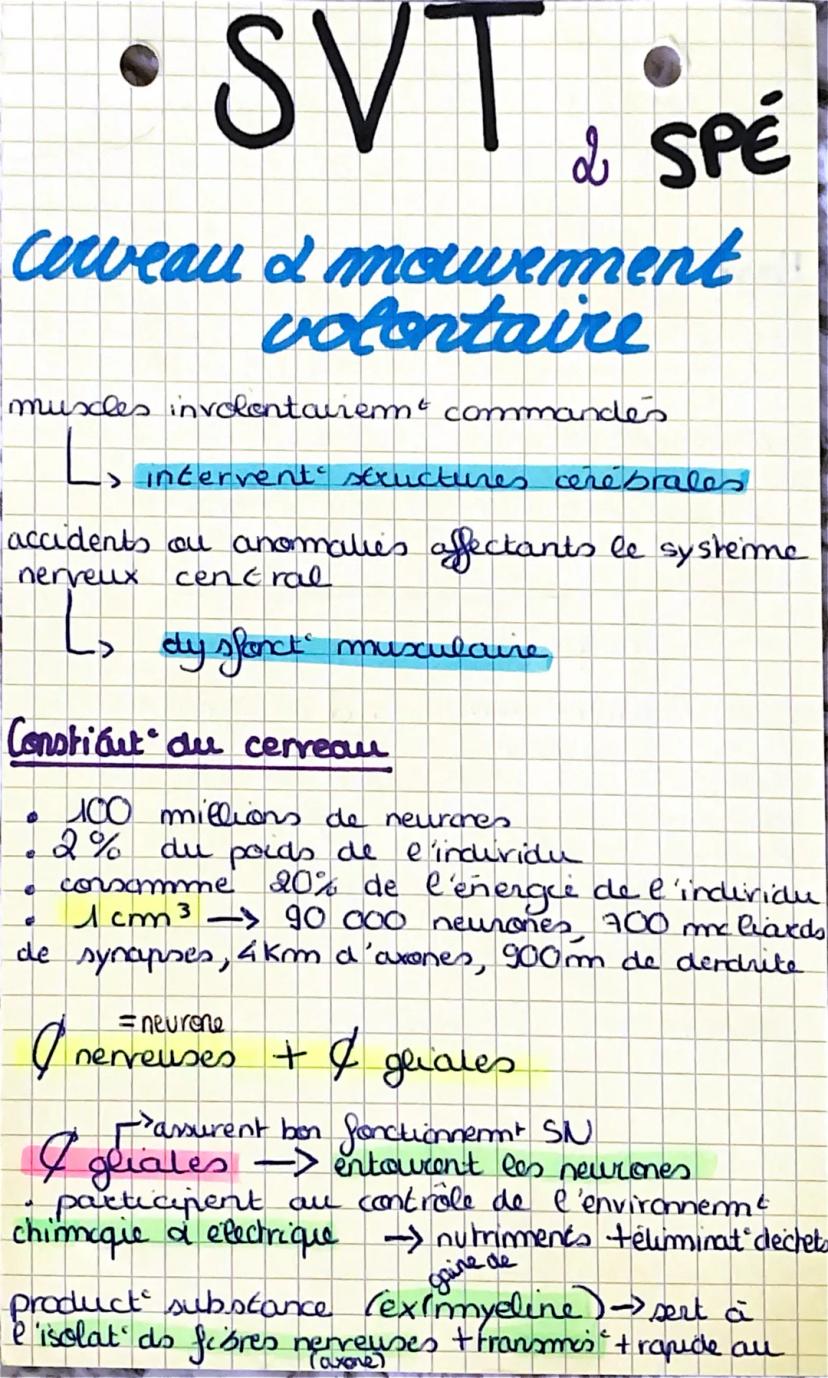 SVT
& SPÉ
cerveau & mouvement
volontaire
muscles involontairemt commandés
↳ intervent° structures cérébrales
accidents ou anomalies affectants le système
nerveux central
↳ dysfonct° musculaire
Constitut° du cerveau
• 100 millions de neurones
• 2% du poids de l'individu
• consomme 20% de l'énergie de l'individu
• 1 cm³ → 90 000 neurones, 700 milliards
de synapses, 4Km d'axones, 900m de dendrite
= neurone
₵ nerveuses + ₵ gliales
↱ assurent bon fonctionnemt SN
₵ gliales → entourent les neurones
• participent au contrôle de l'environnemt
chimique & électrique → nutriments + éliminat° déchets
gaine de
product° substance (ex : myéline) → sert à
l'isolat° ds fibres nerveuses + transmis° + rapide au
(axone)